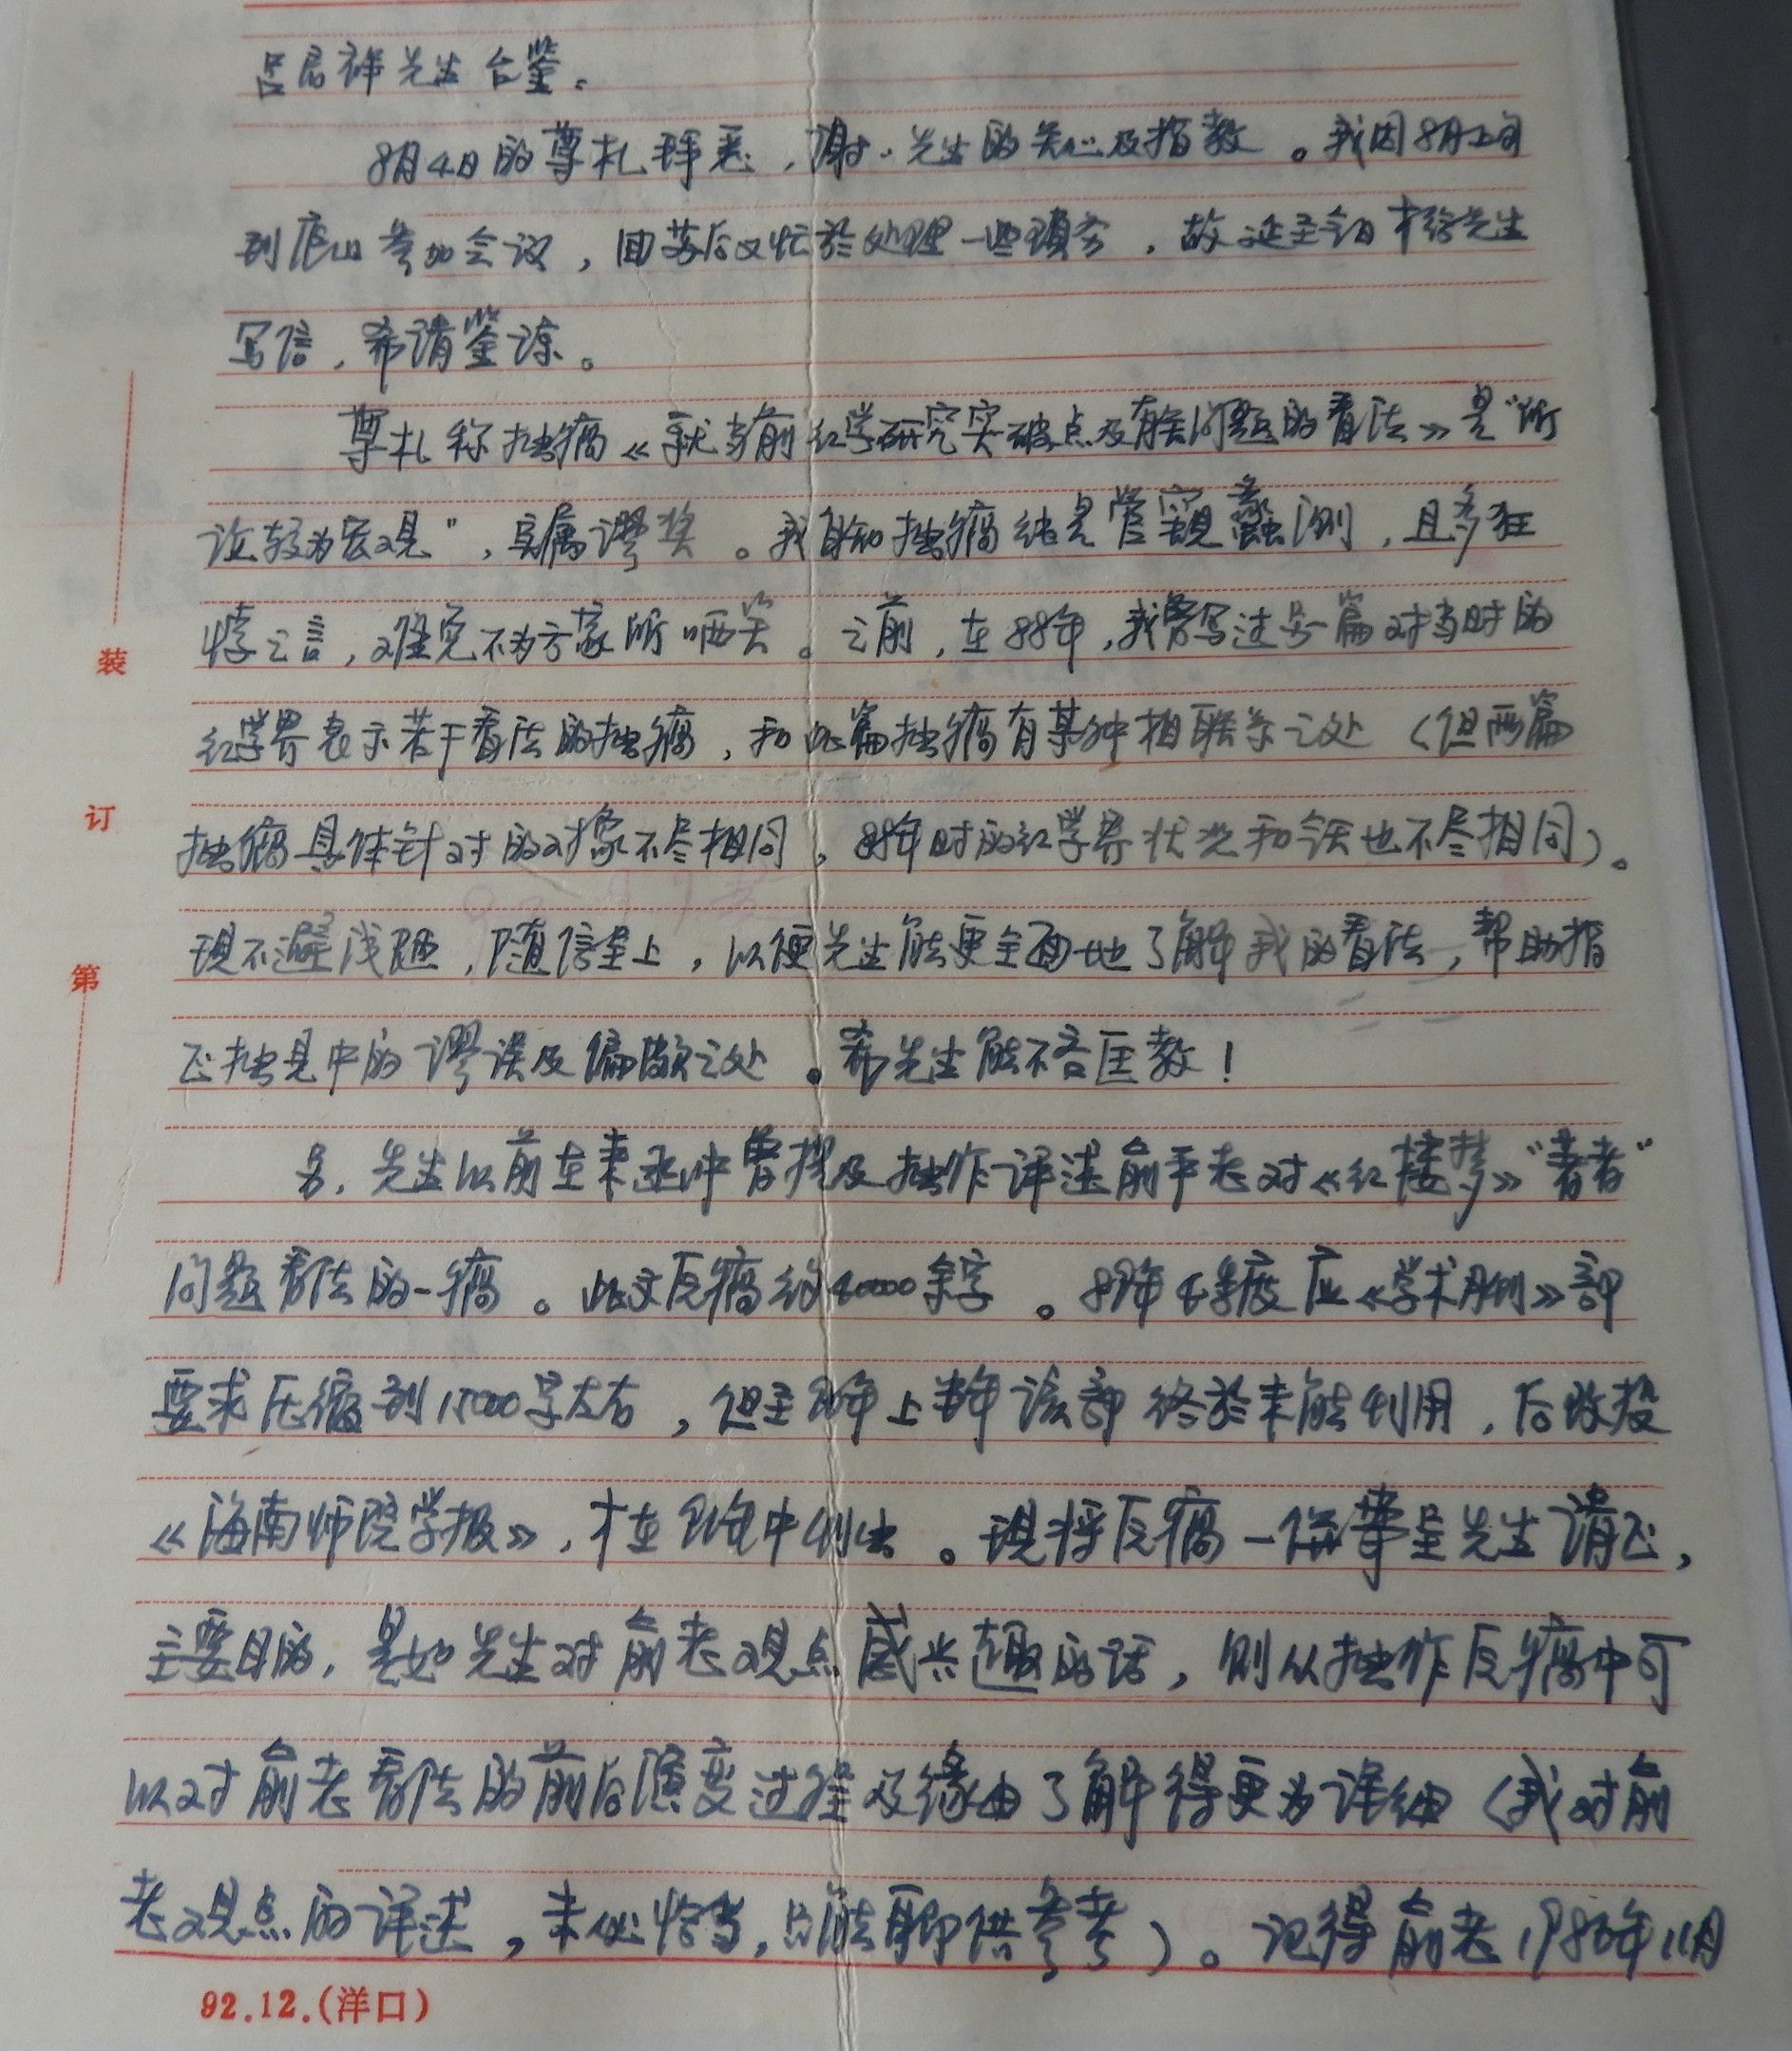 吕启祥先生台鉴:
8月4日的尊札拜悉,谢谢先生的关心及指教。我因8月上旬
到庐山参加会议,回苏后又忙於处理一些琐务,故延至今日才给先生
写信,希请鉴谅。
尊札称拙稿《就当前红学研究突破点及有关问题的看法》是“所
论较为宏观”,实属谬奖。我自知拙稿纯是管窥蠡测,且多狂
悖之言,难免不为方家所哂笑。之前,在88年,我曾写过另一篇对当时的
红学界表示若干看法的拙稿,和此篇拙稿有某种相联系之处(但两篇
拙稿具体针对的对象不尽相同,88年时的红学界状况和今天也不尽相同)。
现不避浅陋,随信呈上,以便先生能更全面地了解我的看法,帮助指
正拙见中的谬误及偏颇之处。希先生能不吝匡教!
另,先生以前在来函中曾提及拙作评述俞平老对《红楼梦》“著者”
问题看法的一稿。此文原稿约40000余字。年度应《学术月刊》部
要求压缩到15000字左右,但至年上半年该部终於未能刊用,后改投
《海南师院学报》,才在年中刊出。现将原稿一併奉呈先生请正,
主要目的,是如先生对俞老观点感兴趣的话,则从拙作原稿中可
以对俞老看法的前后演变过程及缘由了解得更为详细(我对俞
老观点的评述,未必恰当,只能聊供参考)。记得俞老1986年11月
装
订
第
92.12.(洋口)